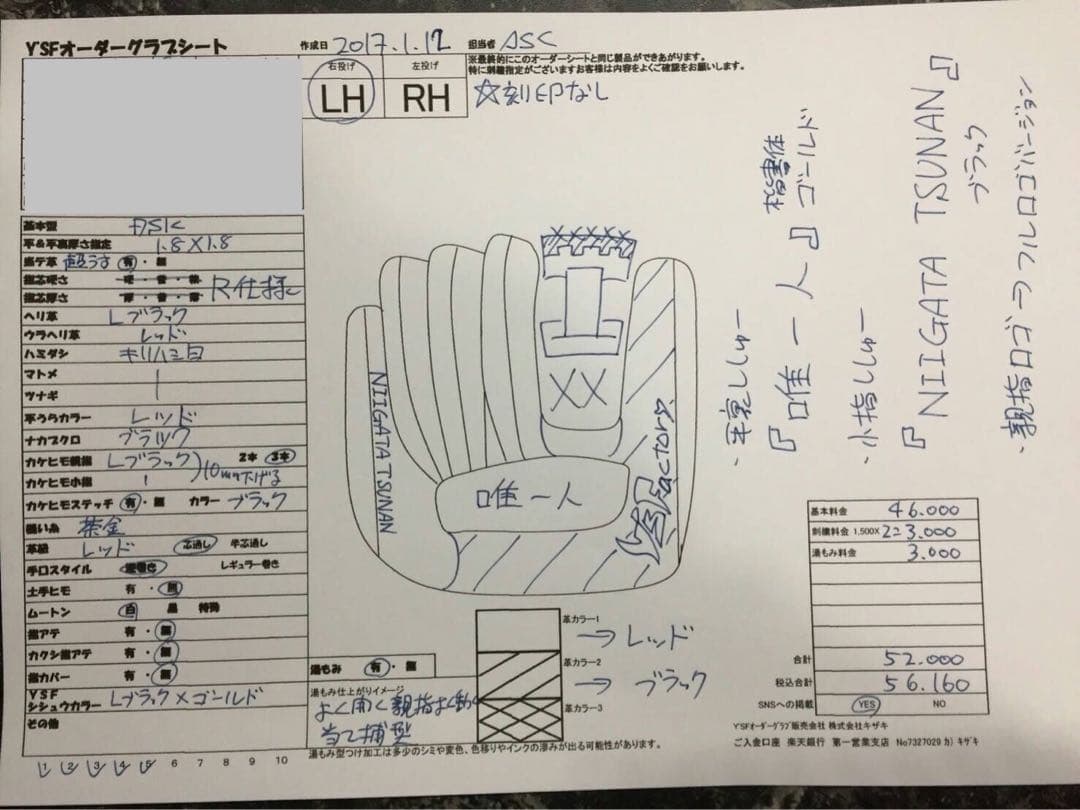 Y'SFオーダーグラブシート
作成日 2017.1.12 担当者 ASC
右投げ 左投げ
LH RH
※最終的にこのオーダーシートと同じ製品ができあがります。
特に刺繍指定がございますお客様は内容をよくご確認をお願いします。
☆刻印なし
基本型 ASK
平&平裏厚さ指定 1.8×1.8
当テ革 超うす 有・無
指芯硬さ 硬・普・軟
指芯厚さ 厚・普・薄
R仕様
ヘリ革 Lブラック
ウラヘリ革 レッド
ハミダシ キリハミ白
マトメ |
ツナギ |
平うらカラー レッド
ナカブクロ ブラック
カケヒモ親指 Lブラック 2本 3本
カケヒモ小指 10mm下げる
カケヒモステッチ 有・無 カラー ブラック
縫い糸 茶金
革紐 レッド 芯通し 半芯通し
手口スタイル 逆巻き レギュラー巻き
土手ヒモ 有・無
ムートン 白 黒 特殊
指アテ 有・無
カクシ指アテ 有・無
指カバー 有・無
YSF
シシュウカラー Lブラック×ゴールド
その他
1 2 3 4 5 6 7 8 9 10
NIIGATA TSUNAN
唯一人
Y'SFactory.
湯もみ 有・無
湯もみ仕上がりイメージ
よく開く親指よく動く
当て捕型
湯もみ型つけ加工は多少のシミや変色、色移りやインクの滲みが出る可能性があります。
革カラー1
→レッド
革カラー2
→ブラック
革カラー3
・平裏ししゅー
『唯一人』
楷書体
ゴールド
・小指ししゅー
『NIIGATA TSUNAN』
ブラック
・親指ロゴ→フルロゴバージョン
基本料金 46.000
刺繍料金 1,500X 2=3,000
湯もみ料金 3.000
合計 52.000
税込合計 56.160
SNSへの掲載 YES NO
Y'SFオーダーグラブ販売会社 株式会社キザキ
ご入金口座 楽天銀行 第一営業支店 No7327029 カ)キザキ